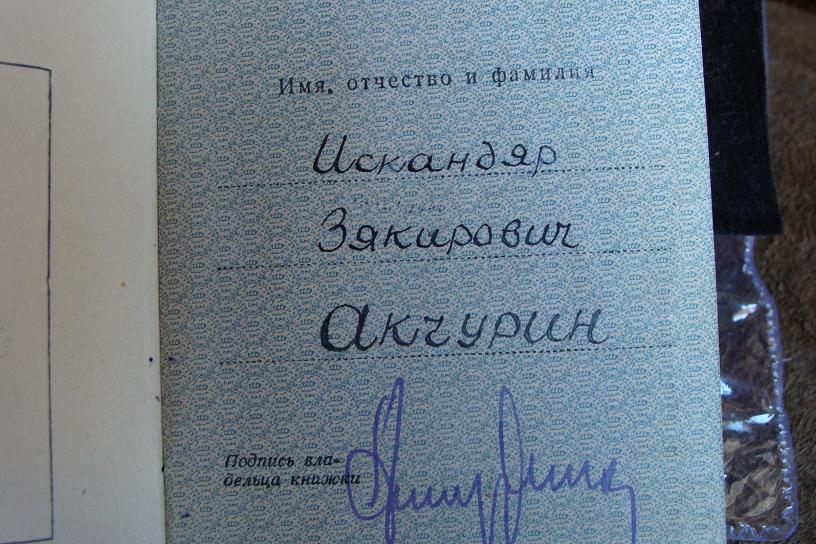 Имя, отчество и фамилия
Искандяр
Зякирович
Акчурин
Подпись вла-
дельца книжки